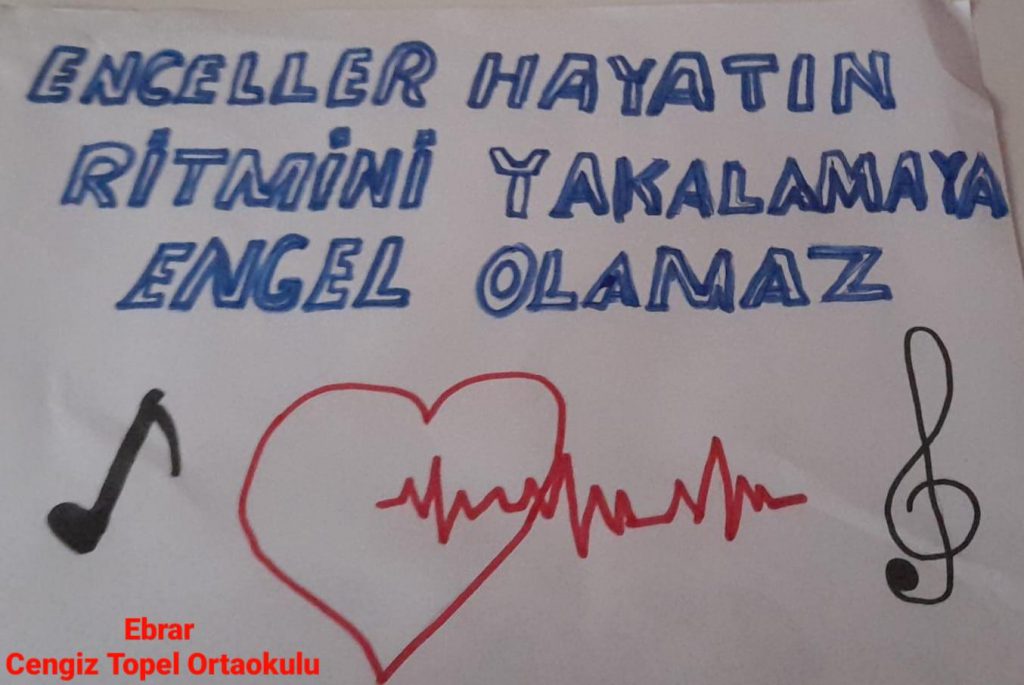 ENGELLER HAYATIN
RİTMİNİ YAKALAMAYA
ENGEL OLAMAZ
Ebrar
Cengiz Topel Ortaokulu